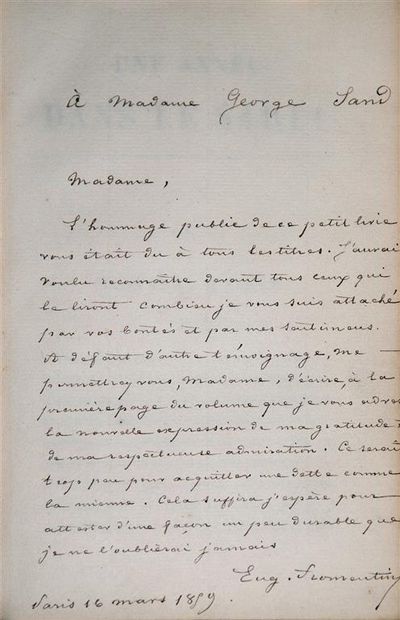 À Madame George Sand
Madame,
L'hommage public de ce petit livre
vous était du à tous les titres. J'aurai
voulu reconnaître devant tous ceux qui
le liront combien je vous suis attaché
par vos bontés et par mes sentimens.
A défaut d'autre témoignage, me
permettrez vous, Madame, d'écrire, à la
première page du volume que je vous adres
la nouvelle expression de ma gratitude &
de ma respectueuse admiration. Ce serait
trop peu pour acquitter une dette comme
la mienne. Cela suffira j'espère pour
attester d'une façon un peu durable que
je ne l'oublierai jamais
Eug. Fromentin
Paris 16 mars 1859.